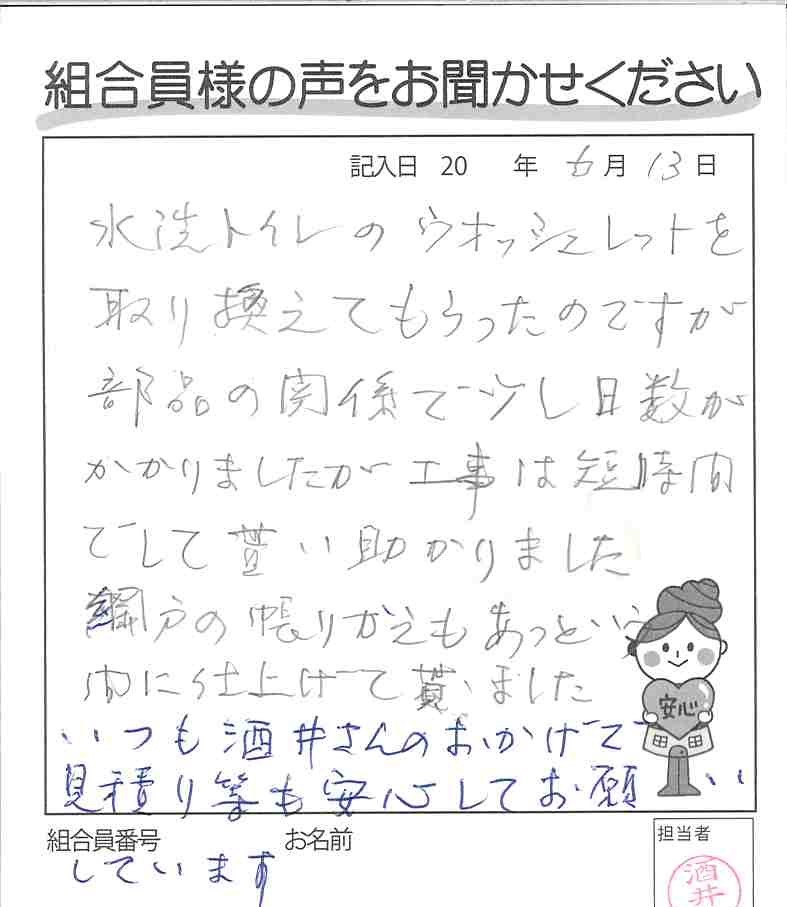 組合員様の声をお聞かせください
記入日 20 年 6月 13日
水洗トイレの ウオッシュレットを
取り換えてもらったのですが
部品の関係で少し日数が
かかりましたが 工事は短時間
でして貰い助かりました
網戸の帳りかえもあっという
間に仕上げて貰いました
安心
いつも酒井さんのおかげで
見積り等も安心してお願い
組合員番号 お名前 担当者
しています
酒井